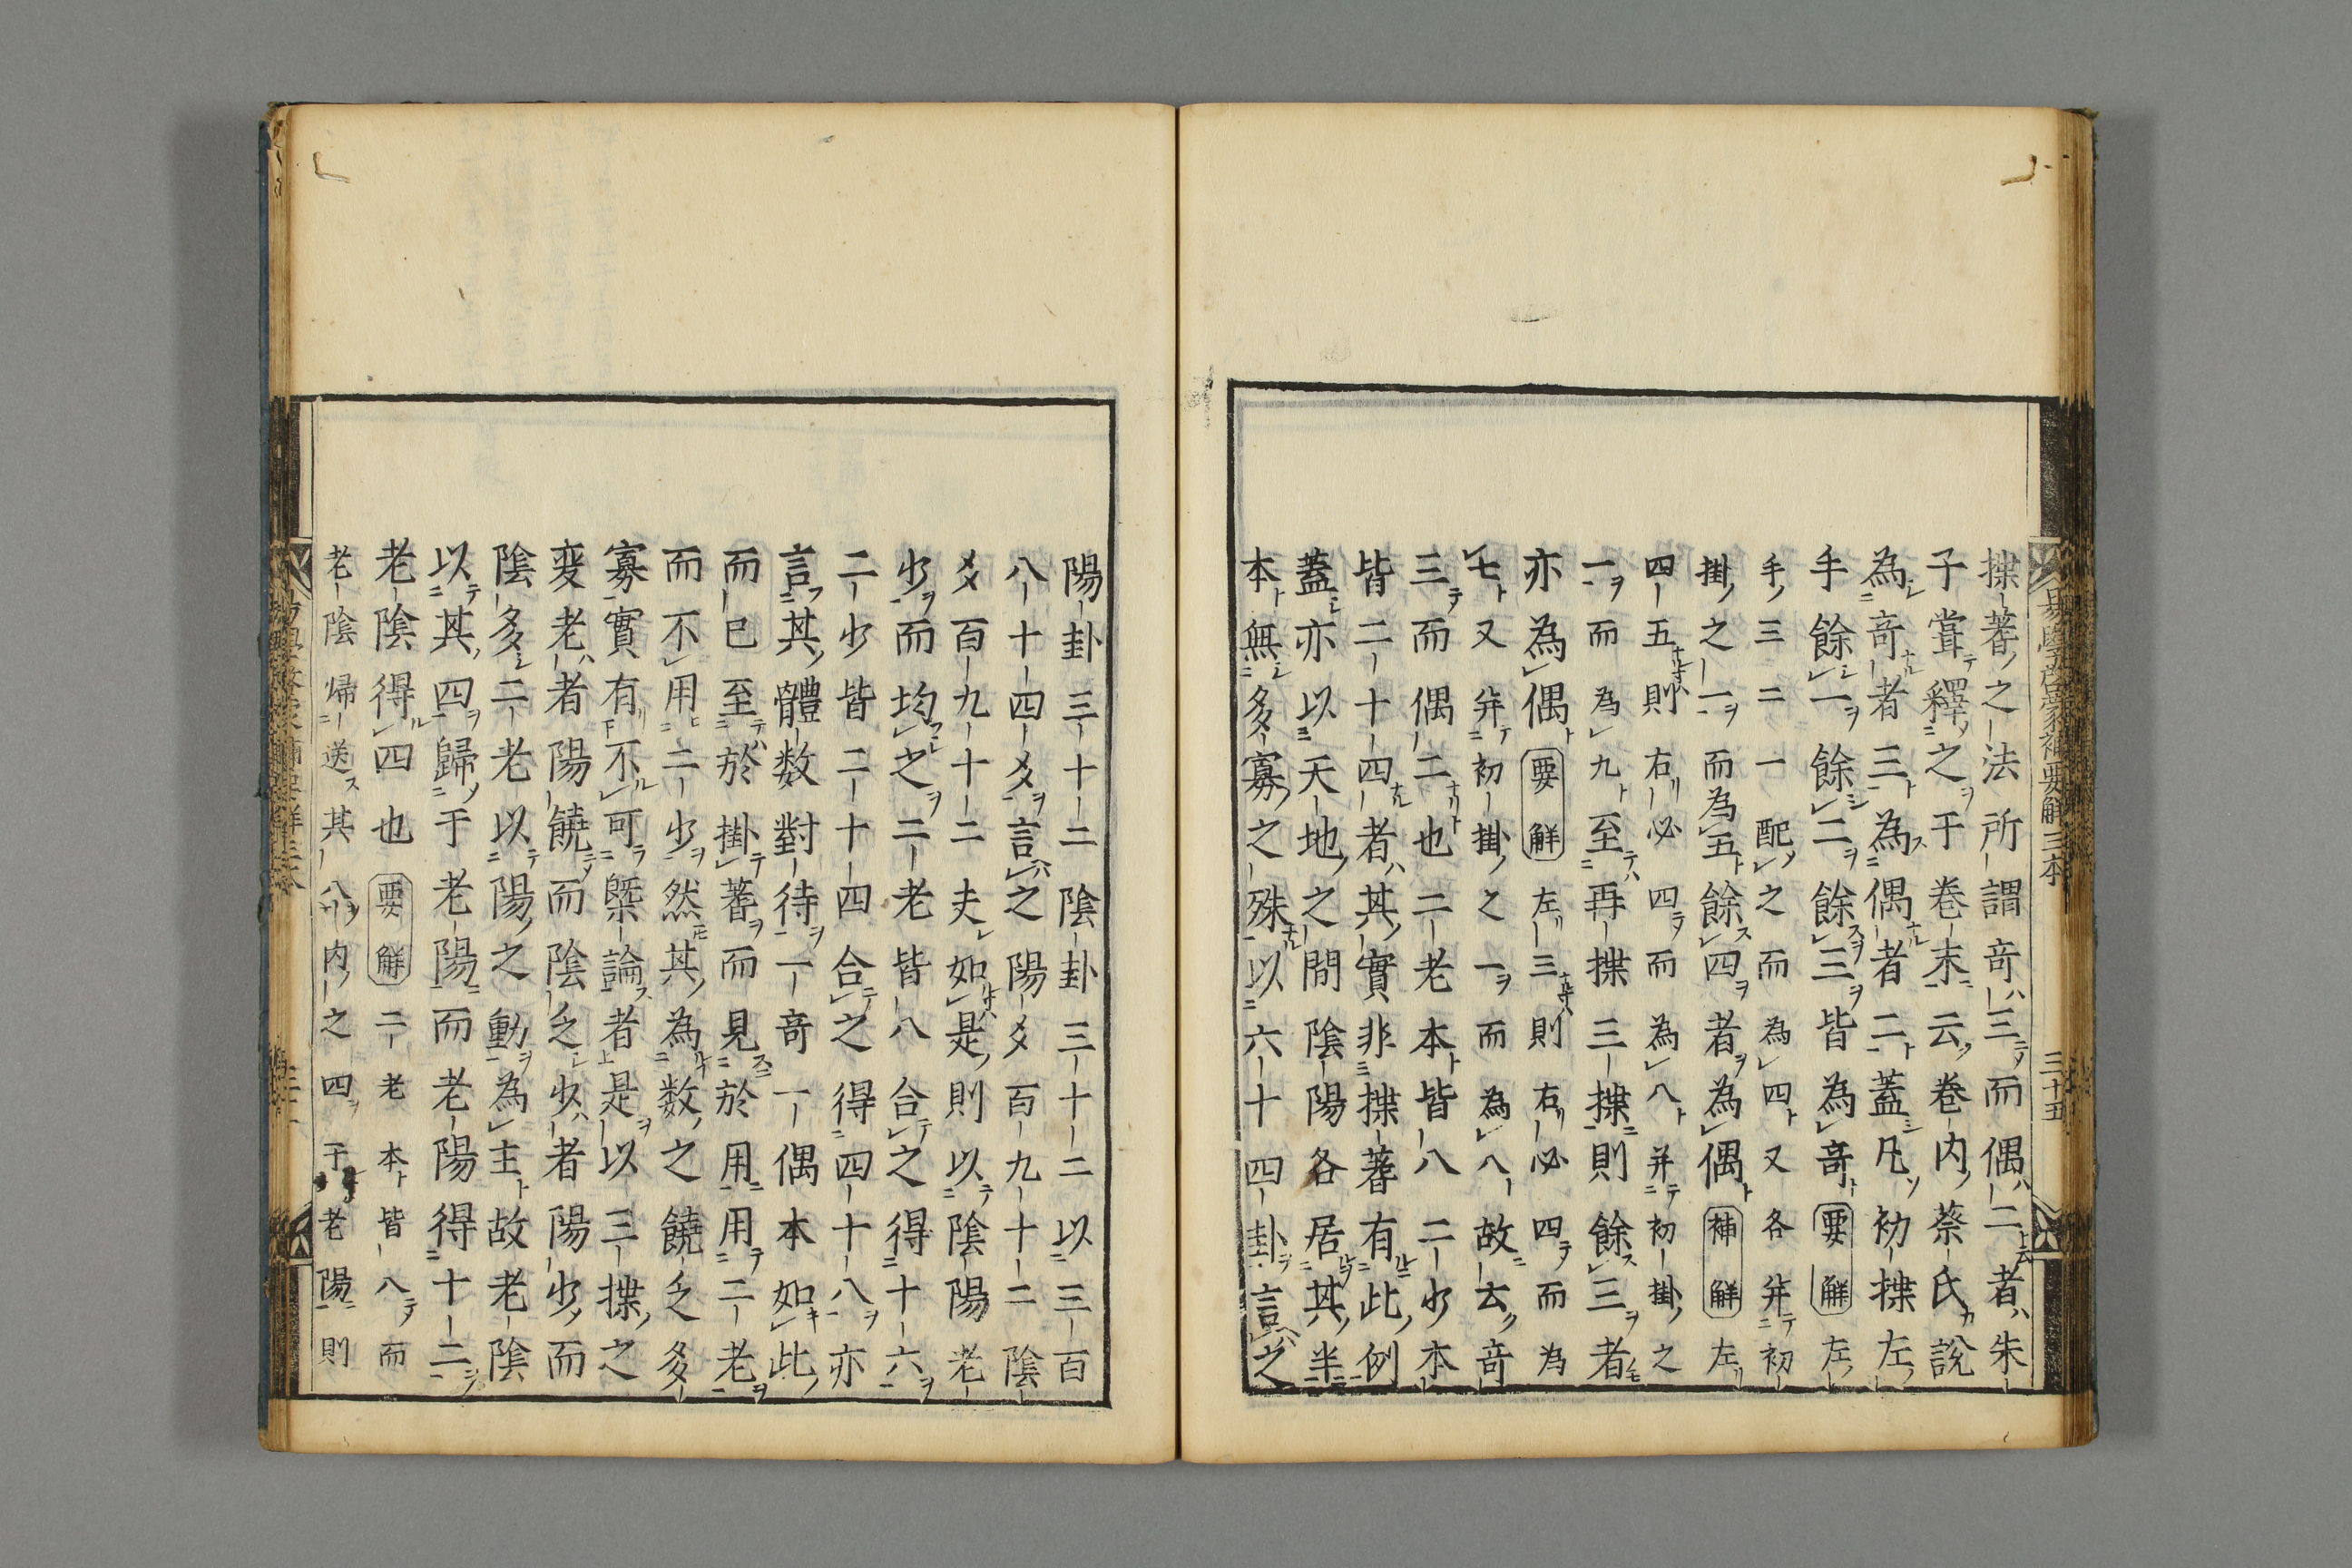 揲蓍之法所謂奇三而偶二者朱
子嘗釋之于卷末云卷内蔡氏說
為奇者三為偶者二蓋凡初揲左
手餘一餘二餘三皆為奇要解左
手三二一配之而為四又各并初
掛之一而為五餘四者為偶補解左
四五則右必四而為八并初掛之
一而為九至再揲三揲則餘三者
亦為偶要解左三則右必四而為
七又并初掛之一而為八故去奇
三而偶二也二老本皆八二少本
皆二十四者其實非揲蓍有此例
蓋亦以天地之間陰陽各居其半
本無多寡之殊以六十四卦言之
易學啓蒙補要解三本
三十五
陽卦三十二陰卦三十二以三百
八十四爻言之陽爻百九十二陰
爻百九十二夫如是則以陰陽老
少而均之二老皆八合之得十六
二少皆二十四合之得四十八亦
言其體数對待一奇一偶本如此
而已至於掛蓍而見於用用二老
而不用二少然其為数之饒乏多
寡實有不可槩論者是以三揲之
変老者陽饒而陰乏少者陽少而
陰多二老以陽之動為主故老陰
以其四歸于老陽而老陽得十二
老陰得四也要解二老本皆八而
老陰帰送其八内之四于老陽則